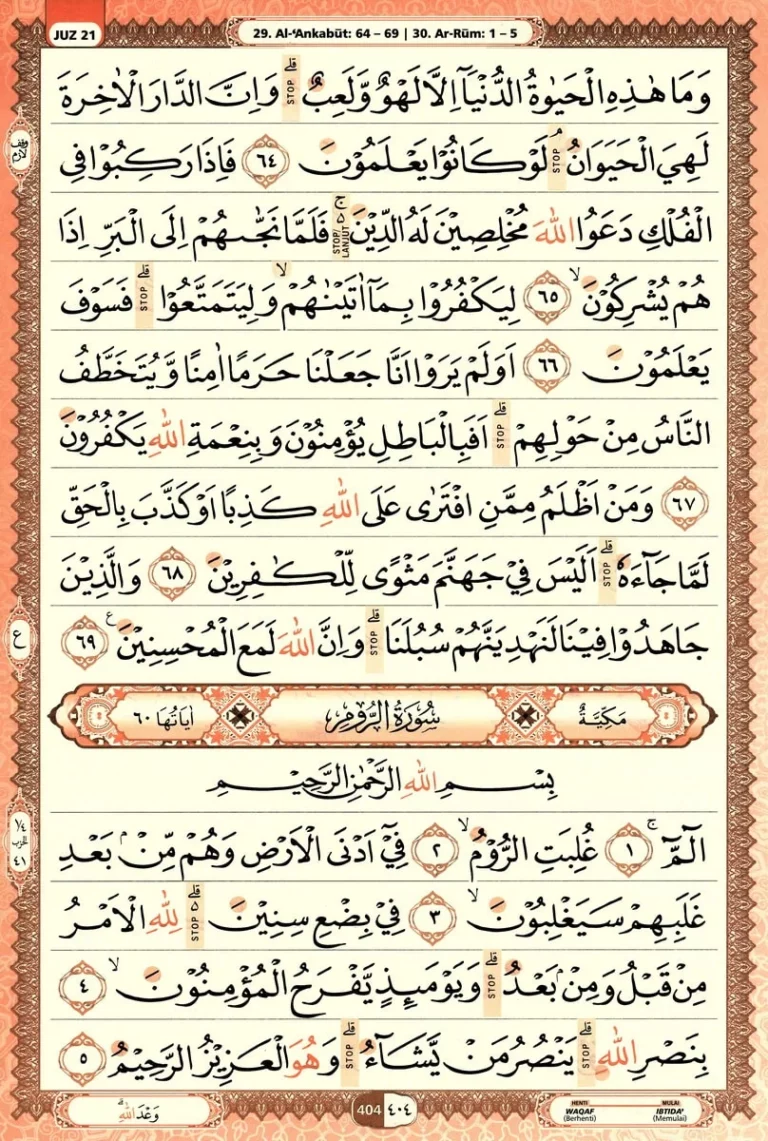 JUZ 21
29. Al-‘Ankabūt: 64 – 69 | 30. Ar-Rūm: 1 – 5
وَمَا هٰذِهِ الْحَيٰوةُ الدُّنْيَآ اِلَّا لَهْوٌ وَّلَعِبٌۗ STOP وَاِنَّ الدَّارَ الْاٰخِرَةَ
وقف لازم
لَهِيَ الْحَيَوَانُۘ STOP لَوْ كَانُوْا يَعْلَمُوْنَ ٦٤ فَاِذَا رَكِبُوْا فِى
الْفُلْكِ دَعَوُا اللّٰهَ مُخْلِصِيْنَ لَهُ الدِّيْنَ ەۚ STOP/LANJUT فَلَمَّا نَجّٰىهُمْ اِلَى الْبَرِّ اِذَا
هُمْ يُشْرِكُوْنَۙ ٦٥ لِيَكْفُرُوْا بِمَآ اٰتَيْنٰهُمْۙ وَلِيَتَمَتَّعُوْاۗ STOP فَسَوْفَ
يَعْلَمُوْنَ ٦٦ اَوَلَمْ يَرَوْا اَنَّا جَعَلْنَا حَرَمًا اٰمِنًا وَّيُتَخَطَّفُ
النَّاسُ مِنْ حَوْلِهِمْۗ STOP اَفَبِالْبَاطِلِ يُؤْمِنُوْنَ وَبِنِعْمَةِ اللّٰهِ يَكْفُرُوْنَ
٦٧ وَمَنْ اَظْلَمُ مِمَّنِ افْتَرٰى عَلَى اللّٰهِ كَذِبًا اَوْ كَذَّبَ بِالْحَقِّ
لَمَّا جَاۤءَهٗۗ STOP اَلَيْسَ فِيْ جَهَنَّمَ مَثْوًى لِّلْكٰفِرِيْنَ ٦٨ وَالَّذِيْنَ
ع
جَاهَدُوْا فِيْنَا لَنَهْدِيَنَّهُمْ سُبُلَنَاۗ STOP وَاِنَّ اللّٰهَ لَمَعَ الْمُحْسِنِيْنَ ࣖ ٦٩
مَكِّيَّةٌ سُوْرَةُ الرُّوْمِ اٰيَاتُهَا ٦٠
بِسْمِ اللّٰهِ الرَّحْمٰنِ الرَّحِيْمِ
¼ الحزب ٤١
الۤمّۤۚ ١ غُلِبَتِ الرُّوْمُۙ ٢ فِيْٓ اَدْنَى الْاَرْضِ وَهُمْ مِّنْۢ بَعْدِ
غَلَبِهِمْ سَيَغْلِبُوْنَۙ ٣ فِيْ بِضْعِ سِنِيْنَ ەۗ STOP لِلّٰهِ الْاَمْرُ
مِنْ قَبْلُ وَمِنْۢ بَعْدُۗ STOP وَيَوْمَىِٕذٍ يَّفْرَحُ الْمُؤْمِنُوْنَۙ ٤
بِنَصْرِ اللّٰهِۗ STOP يَنْصُرُ مَنْ يَّشَاۤءُۗ STOP وَهُوَ الْعَزِيْزُ الرَّحِيْمُ ٥
وَعْدَ اللّٰهِۗ
404 ٤٠٤
HENTI WAQAF (Berhenti)
MULAI IBTIDA' (Memulai)